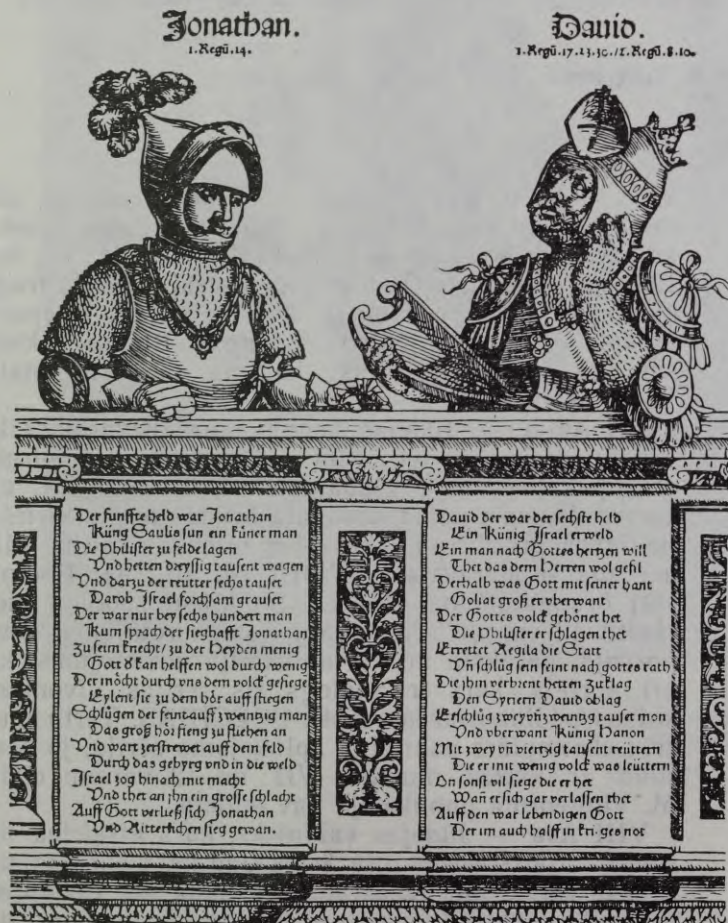 Jonathan.
1. Regū. 14.
Der funffte held war Jonathan
Küng Saulis sun ein küner man
Die Philister zu felde lagen
Vnd hetten dreyssig tausent wagen
Vnd darzu der reütter sechs tauset
Darob Israel forchsam grauset
Der war nur bey sechs hundert man
Kum sprach der sieghafft Jonathan
Zu seim knecht/ zu der Heyden menig
Gott d kan helffen wol durch wenig
Der möcht durch vns dem volck gesiege
Eylent sie zu dem hör auff stiegen
Schlügen der feint auff zweintzig man
Das groß hör fieng zu fliehen an
Vnd wart zerstrewet auff dem feld
Durch das gebyrg vnd in die weld
Israel zog hinach mit macht
Vnd thet an jhn ein grosse schlacht
Auff Gott verließ sich Jonathan
Vnd Ritterlichen sieg gewan.
Dauid.
1. Regū. 17. 23. 30. /2. Regū. 8. 10.
Dauid der war der sechste held
Ein Künig Israel erweld
Ein man nach Gottes hertzen will
Thet das dem Herren wol gefil
Derhalb was Gott mit seiner hant
Goliat groß er vberwant
Der Gottes volck gehönet het
Die Philister er schlagen thet
Errettet Regila die Statt
Vñ schlüg sein feint nach gottes rath
Die jhm verbrent hetten Zuklag
Den Syriern Dauid oblag
Erschlüg zwey vñ zweintzig tauset mon
Vnd vberwant Künig Hanon
Mit zwey vñ viertzig tausent reüttern
Die er mit wenig volck was leüttern
On sonst vil siege die er het
Wañ er sich gar verlassen thet
Auff den war lebendigen Gott
Der im auch halff in not